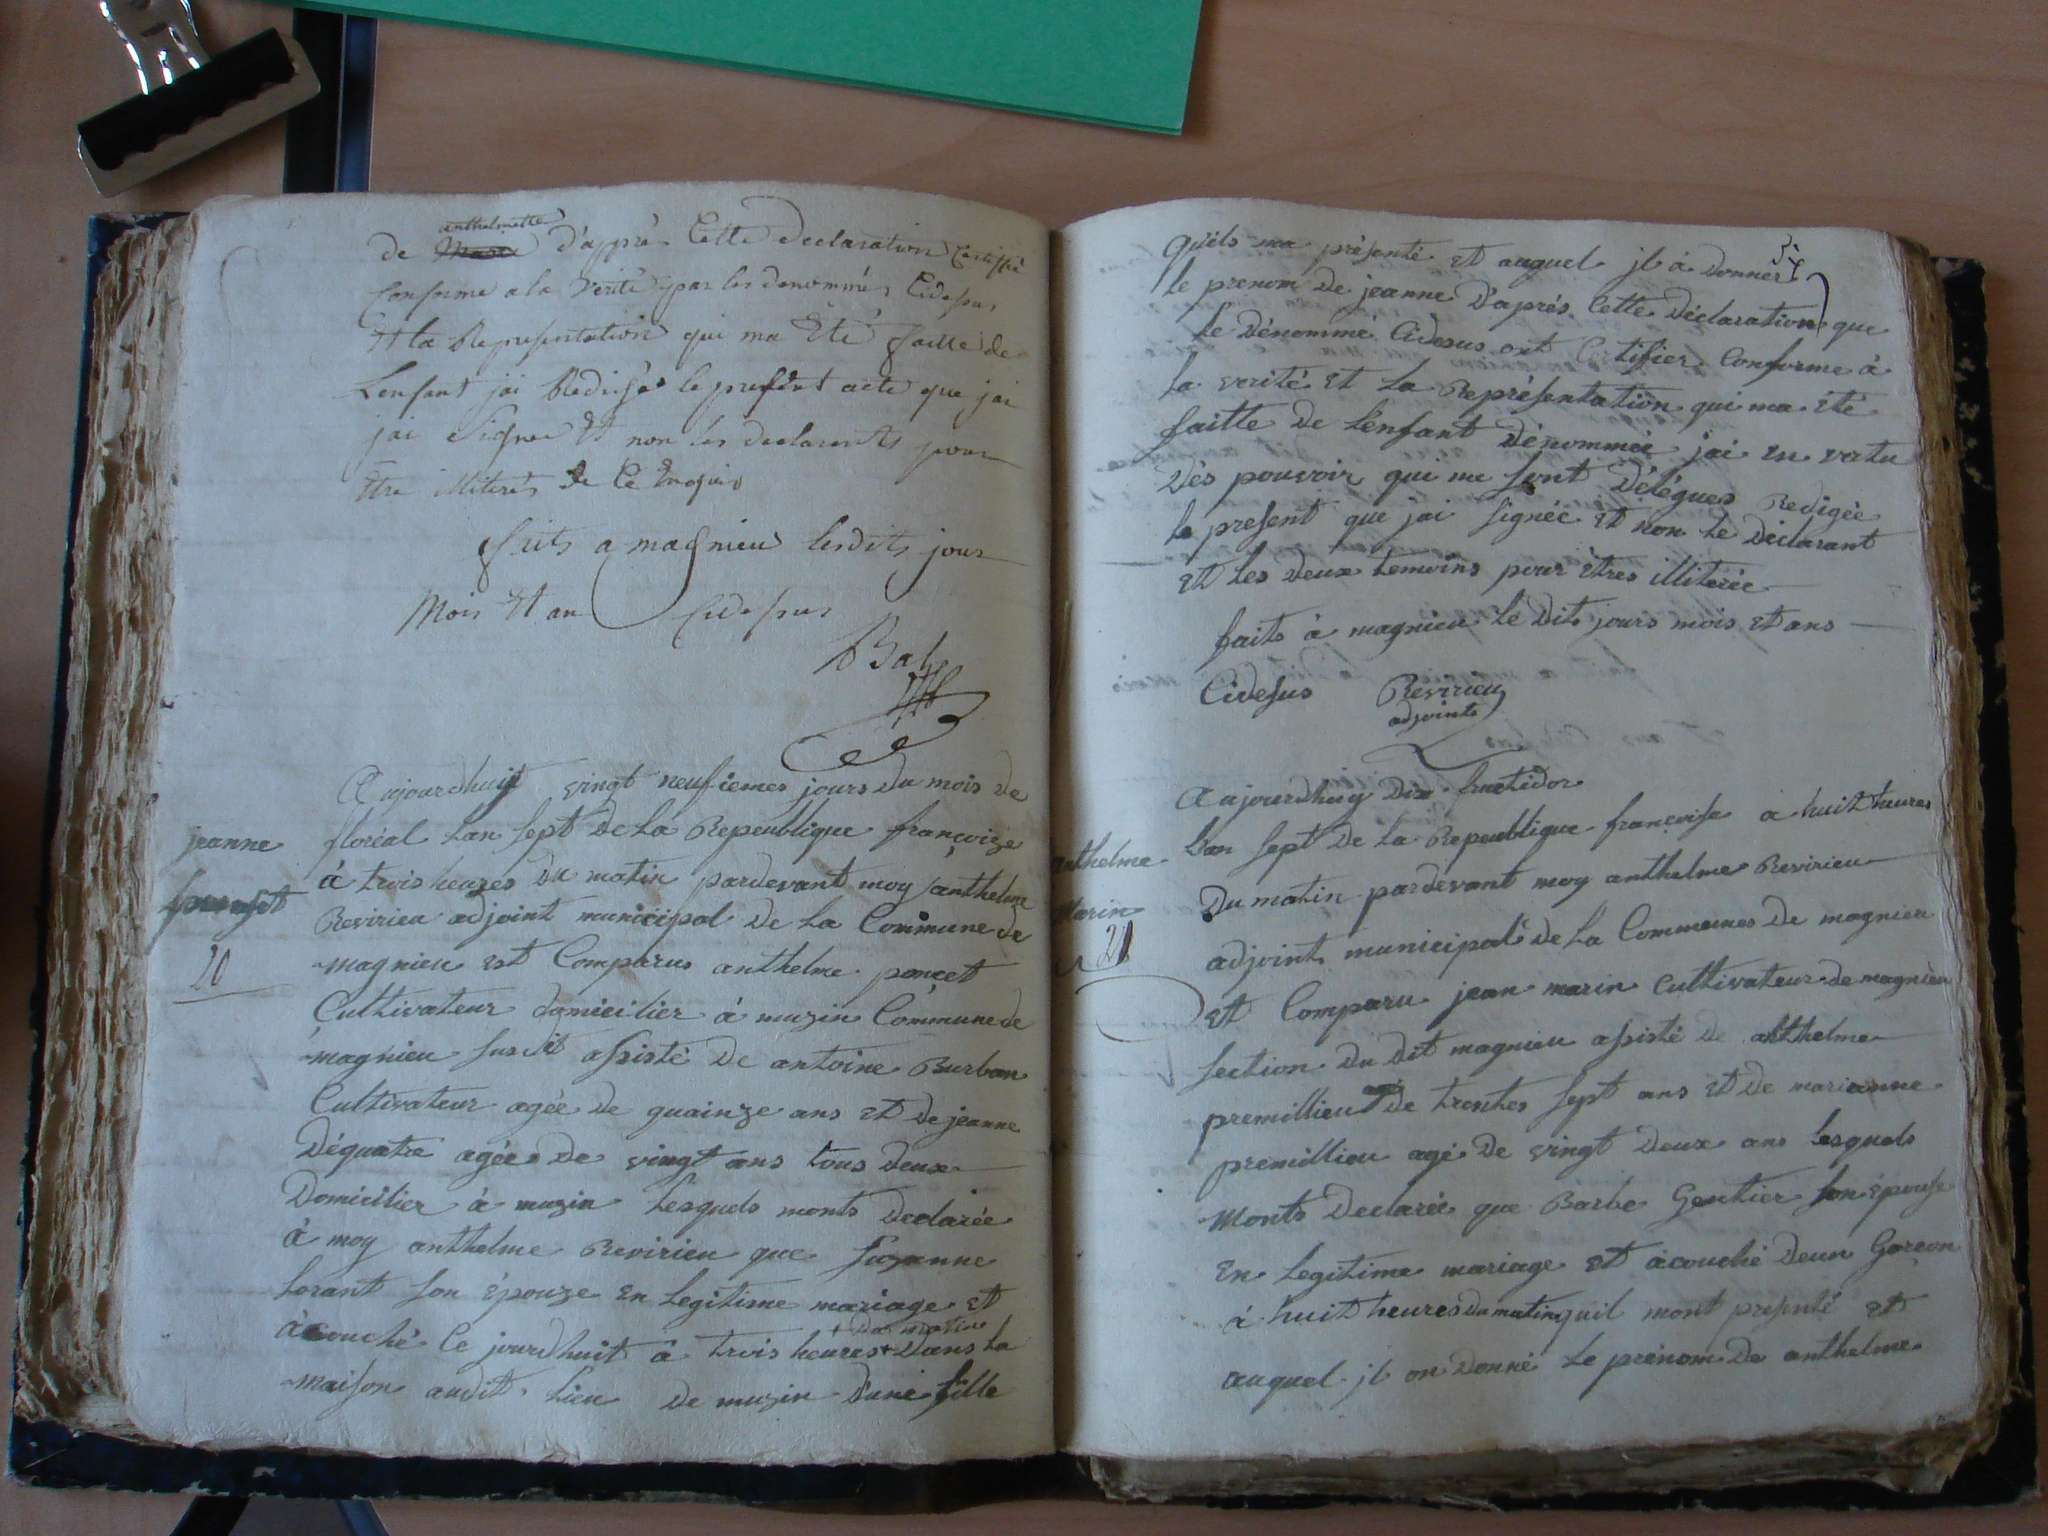 anthelmette
de Marie d'apprés Cette declaration Certifié
Conforme a la Verité par les denommés Cidessus
Et la Representation qui ma Eté faitte de
Lenfant jai Redigés le present acte que jai
jai Signee Et non les declarents pour
Etre illiterés de Ce Enquis
faits a magnieu lesdits jour
Mois Et an Cidessus
Bal
jeanne
poncet
20
Aujourdhuit vingt neufiemes jours du mois de
floréal Lan sept de La Republique françoize
à trois heures du matin pardevant moy anthelme
Revirieu adjoint municipal de La Commune de
magnieu est Comparus anthelme poncet
Cultivateur domicilier à muzin Commune de
magnieu susdit assisté de antoine Burban
Cultivateur agée de quainze ans et de jeanne
Déquatre agée de vingt ans tous deux
Domicilier à muzin Lesquels monts declarée
à moy anthelme Revirieu que suzanne
Lorant son épouze en Legitime mariage et
+ du matin
àcouché Ce jourdhuit à trois heures + Dans La
maison audit Lieu de muzin d'une fille
57
quils ma présenté et auquel jl à donner
le prenom de jeanne D'aprés Cette Déclaration que
le Dénommé Cidesus ont Certifier Conforme à
la verité et La Représentation qui ma été
faitte de Lenfant Dénommée jai en vertu
Dés pouvoir qui me sont Délégues Redigée
le present que jai signée et non le Déclarant
et les deux temoins pour êtres illiterée
faits à magnieu le dits jours mois et ans
Cidesus Revirieu
adjoints
anthelme
Marin
21
Aujourdhuy Dix fructidor
Lan sept de La Republique françoise a huit heures
Du matin pardevant moy anthelme Revirieu
adjoint municipal de La Communes de magnieu
et Comparu jean marin Cultivateur de magnieu
section du dit magnieu assisté de anthelme
premillieu de trentes sept ans et de marianne
premillieu agé de vingt deux ans Lesquels
monts Declarée que Barbe Gentier son épouse
en Legitime mariage et àcouché deun Garcon
à huit heures du matin quil mont presenté et
auquel jl on Donné le prénom de anthelme